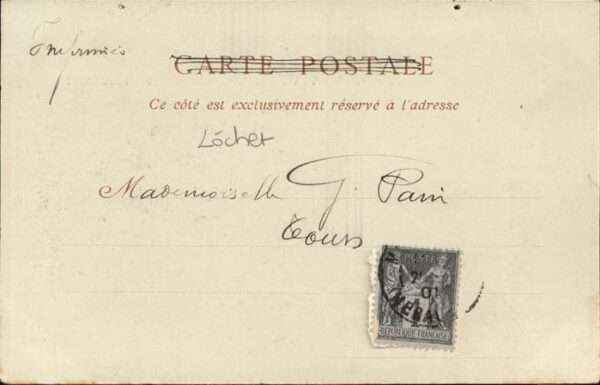 Imprimés
CARTE POSTALE
Ce côté est exclusivement réservé à l'adresse
Lóches
Mademoiselle G. Parin
Tours
POSTE
01
REPUBLIQUE FRANÇAISE